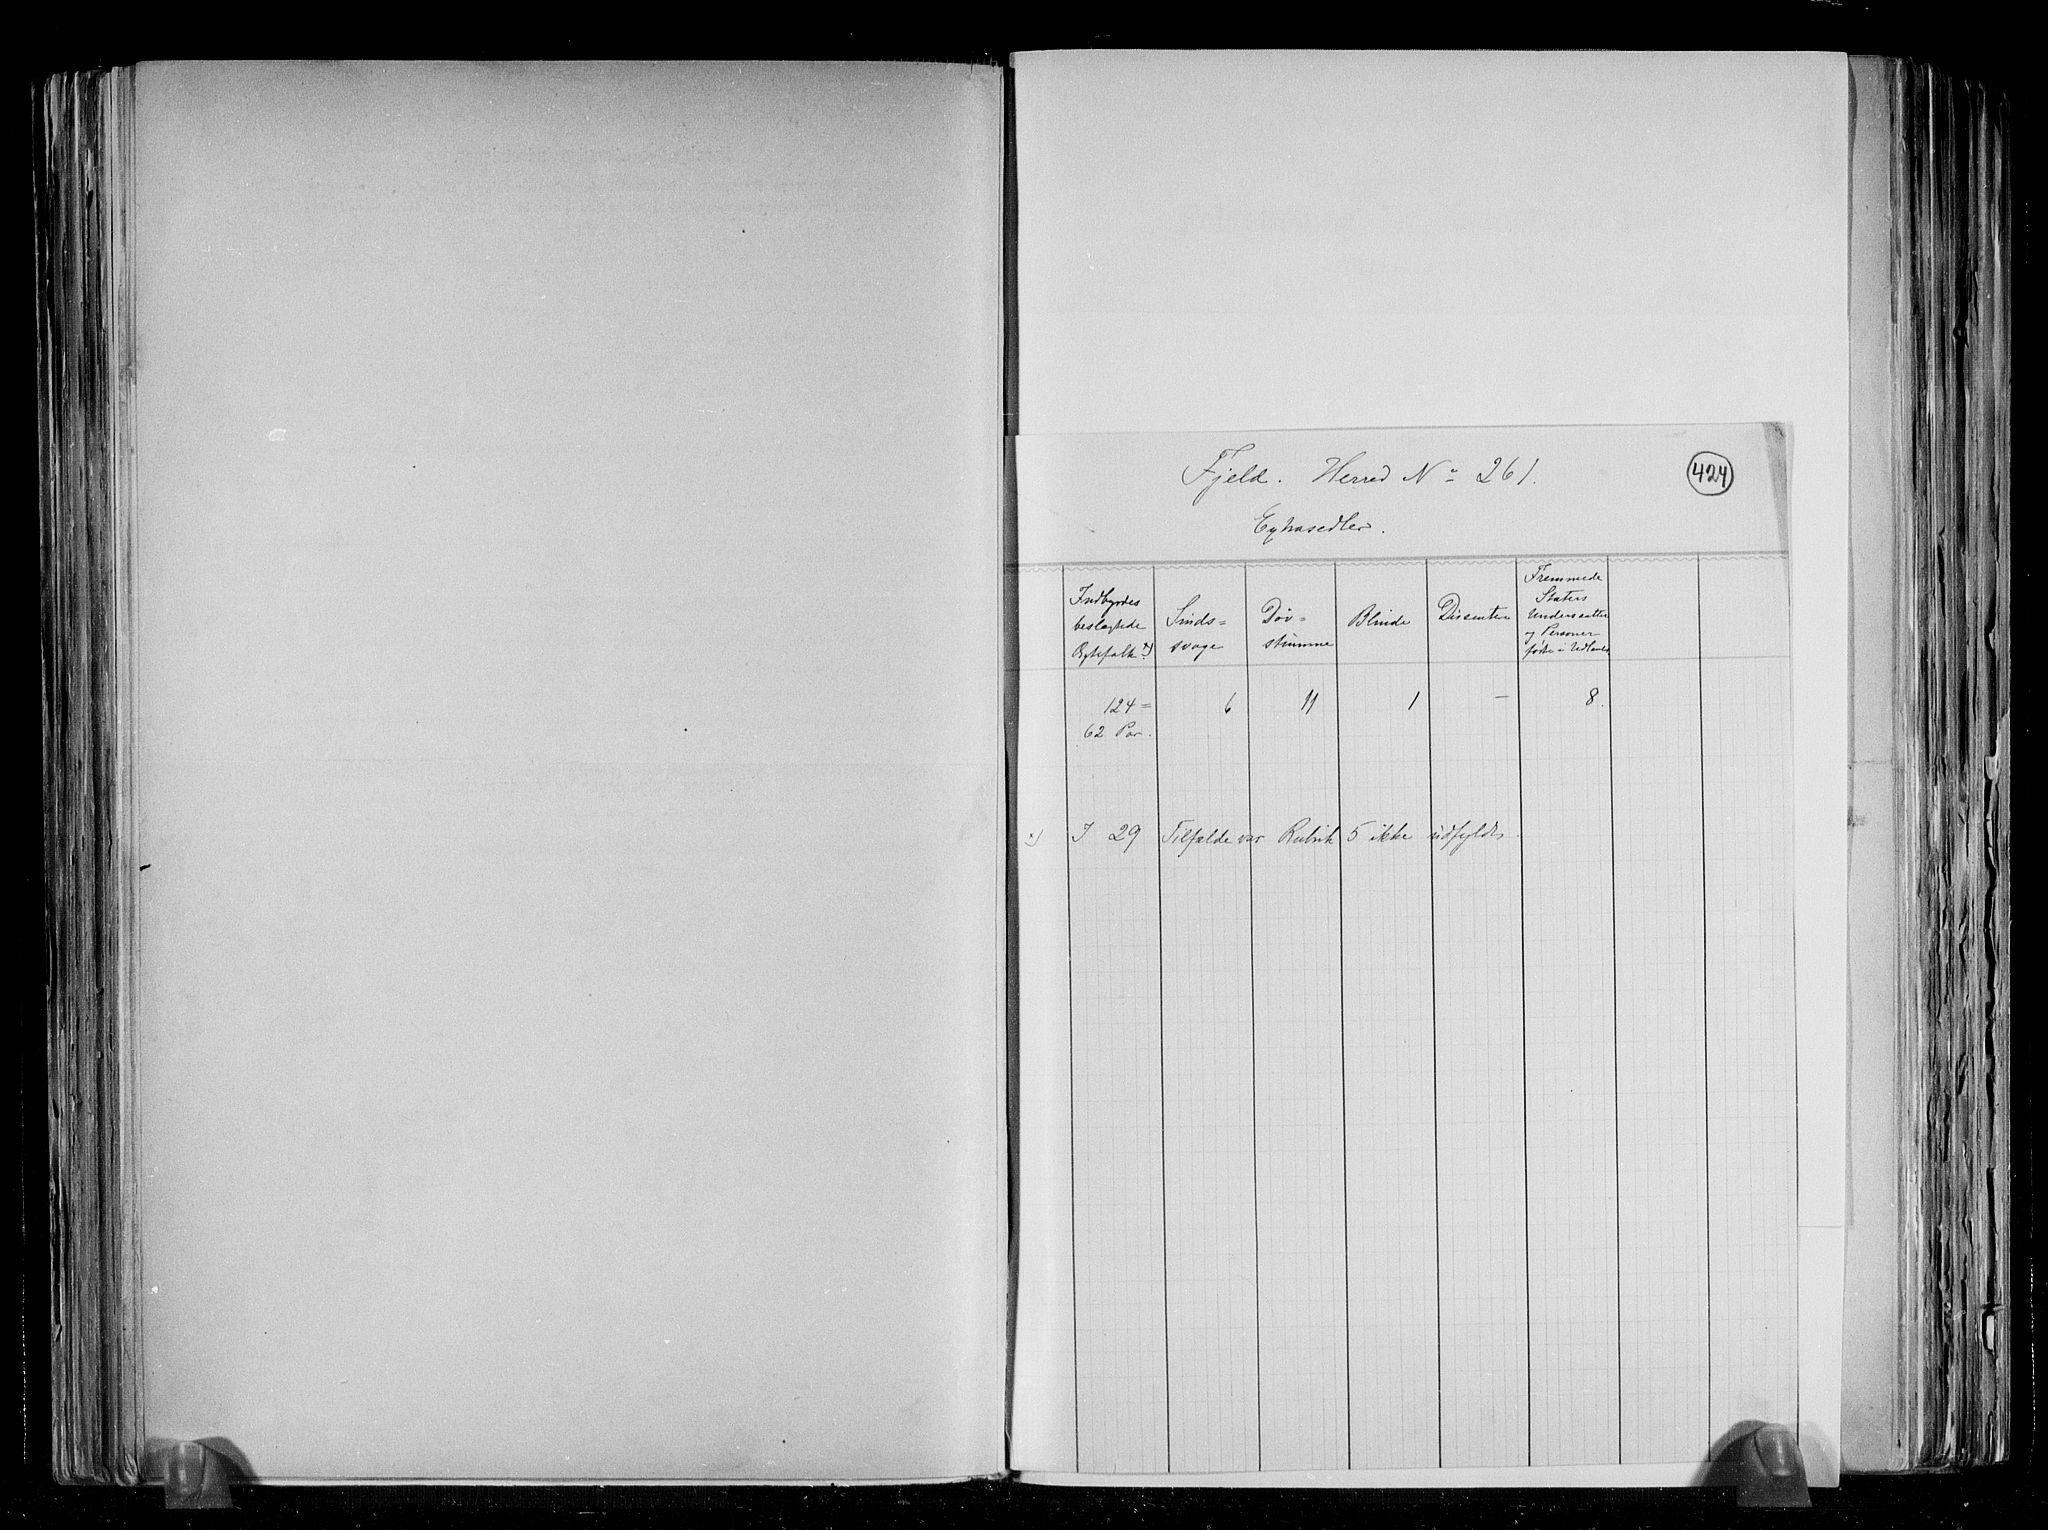 Fjeld. Herred No 261.
424
Extrasedler.
Indbyrdes beslægtede Ægtefolk x)
Sinds= svage
Døv= stumme
Blinde
Dissentere
Fremmede Staters Undersaatter og Personer fødte i Udlandet
124 = 6 11 1 — 8.
62 Par.
x) I 29 Tilfælde var Rubrik 5 ikke udfyldt.